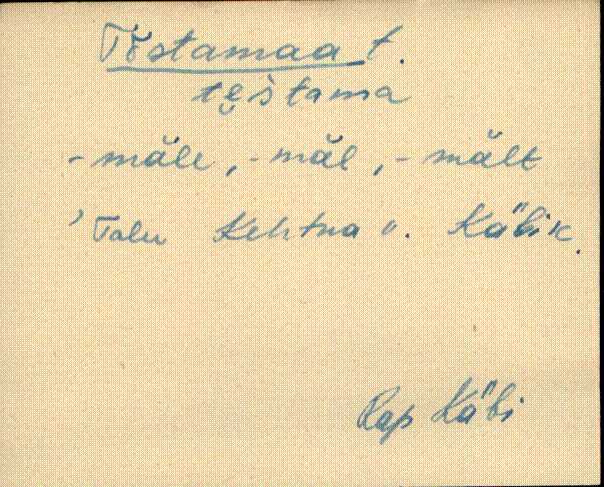 Tõstamaa t.
tẹ̮štama
-mäle, -mäl, -mält
'Talu Kehtna v. Käbik.
Rap Käbi